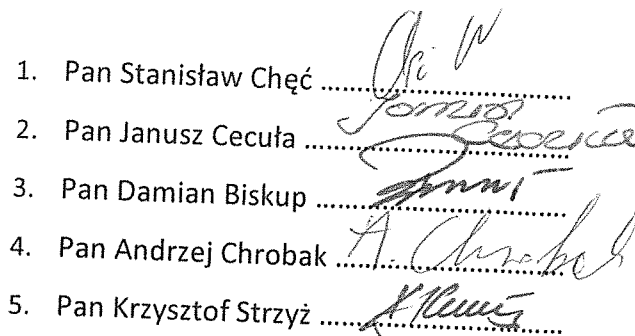 1. Pan Stanisław Chęć ..............................
2. Pan Janusz Cecuła ..............................
3. Pan Damian Biskup ..............................
4. Pan Andrzej Chrobak .............................. A. Chrobak
5. Pan Krzysztof Strzyż ..............................